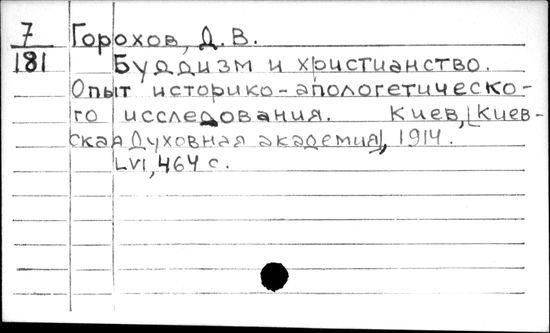 7 Горохов, Д. В.
181 Буддизм и христианство.
Опыт историко-апологетическо-
го исследования. Киев, [Киев-
ская Духовная академия], 1914.
LVI, 464 с.